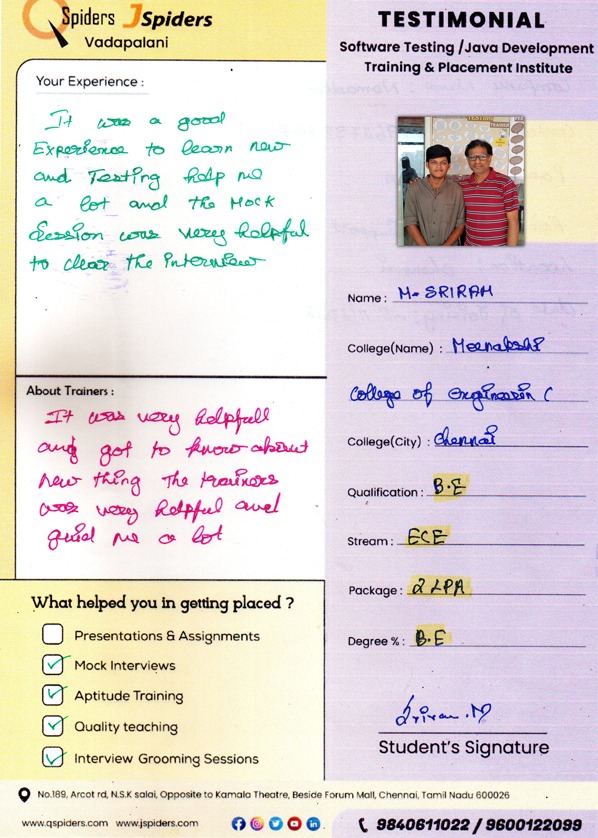 QSpiders JSpiders
Vadapalani
Your Experience :
It was a good
Experience to learn new
and Testing help me
a lot and the Mock
Session was very helpful
to clear the interview
About Trainers :
It was very helpfull
and got to know about
new thing the trainers
was very helpful and
guid me a lot
What helped you in getting placed ?
Presentations & Assignments
Mock Interviews
Aptitude Training
Quality teaching
Interview Grooming Sessions
TESTIMONIAL
Software Testing /Java Development
Training & Placement Institute
TESTING
Name : M. SRIRAM
College(Name) : Meenakshi
College of engineerin C
College(City) : Chennai
Qualification : B.E
Stream : ECE
Package : 2 LPA
Degree % : B.E
Sriram .M
Student's Signature
No.189, Arcot rd, N.S.K salai, Opposite to Kamala Theatre, Beside Forum Mall, Chennai, Tamil Nadu 600026
www.qspiders.com www.jspiders.com
9840611022 / 9600122099